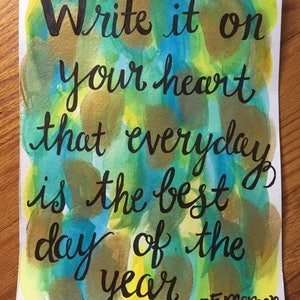 Write it on
your heart
that everyday
is the best
day of the
year
-Emerson